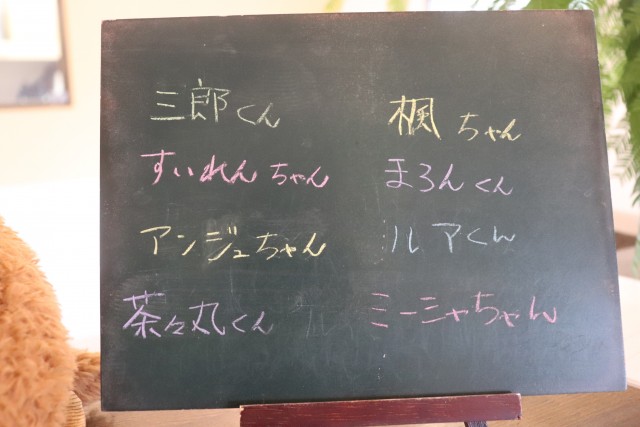 三郎くん
すいれんちゃん
アンジュちゃん
茶々丸くん
楓ちゃん
まろんくん
ルアくん
ミーシャちゃん